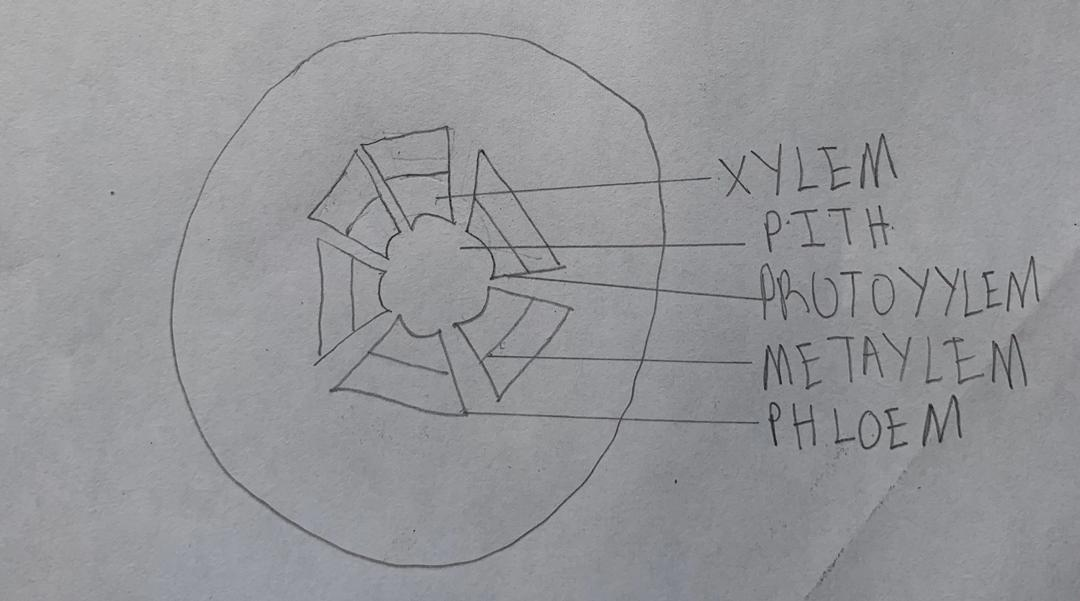 XYLEM
PITH
PROTOYYLEM
METAYLEM
PHLOEM